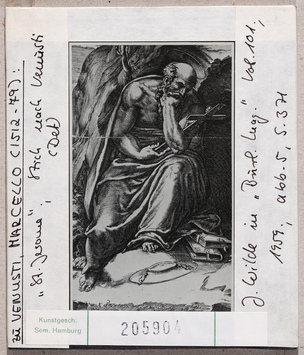 zu VENUSTI, MARCELLO (1512-79):
"St. Jerome", Stich nach Venusti
(Det)
J. Wilde in "Burl. Mag." Vol. 101,
1959, Abb. 5, S. 371
Kunstgesch.
Sem. Hamburg
205904